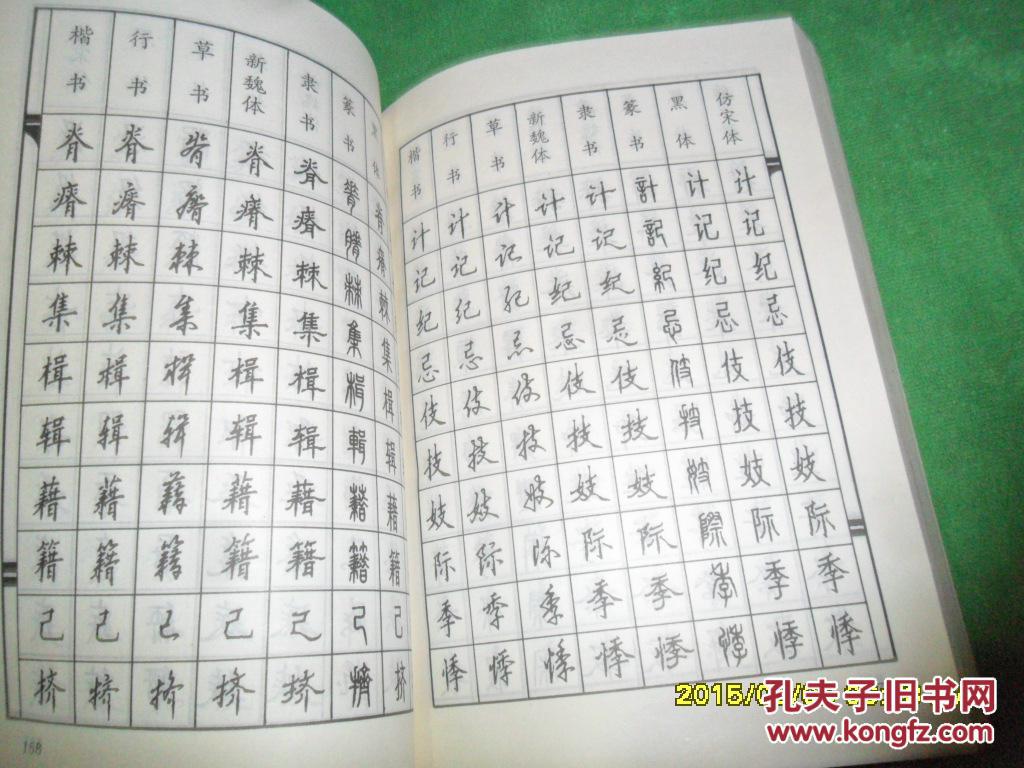 楷书 行书 草书 新魏体 隶书 篆书 黑体
脊 脊 脊 脊 脊 脊 脊
瘠 瘠 瘠 瘠 瘠 瘠 瘠
棘 棘 棘 棘 棘 棘 棘
集 集 集 集 集 集 集
楫 楫 楫 楫 楫 楫 楫
辑 辑 辑 辑 辑 輯 辑
藉 藉 藉 藉 藉 藉 藉
籍 籍 籍 籍 籍 籍 籍
己 己 己 己 己 己 己
挤 挤 挤 挤 挤 擠 挤
168
楷书 行书 草书 新魏体 隶书 篆书 黑体 仿宋体
计 计 计 计 计 計 计 计
记 记 记 记 记 記 记 记
纪 纪 纪 纪 纪 紀 纪 纪
忌 忌 忌 忌 忌 忌 忌 忌
伎 伎 伎 伎 伎 伎 伎 伎
技 技 技 技 技 技 技 技
妓 妓 妓 妓 妓 妓 妓 妓
际 际 际 际 际 際 际 际
季 季 季 季 季 季 季 季
悸 悸 悸 悸 悸 悸 悸 悸
孔夫子旧书网
www.kongfz.com